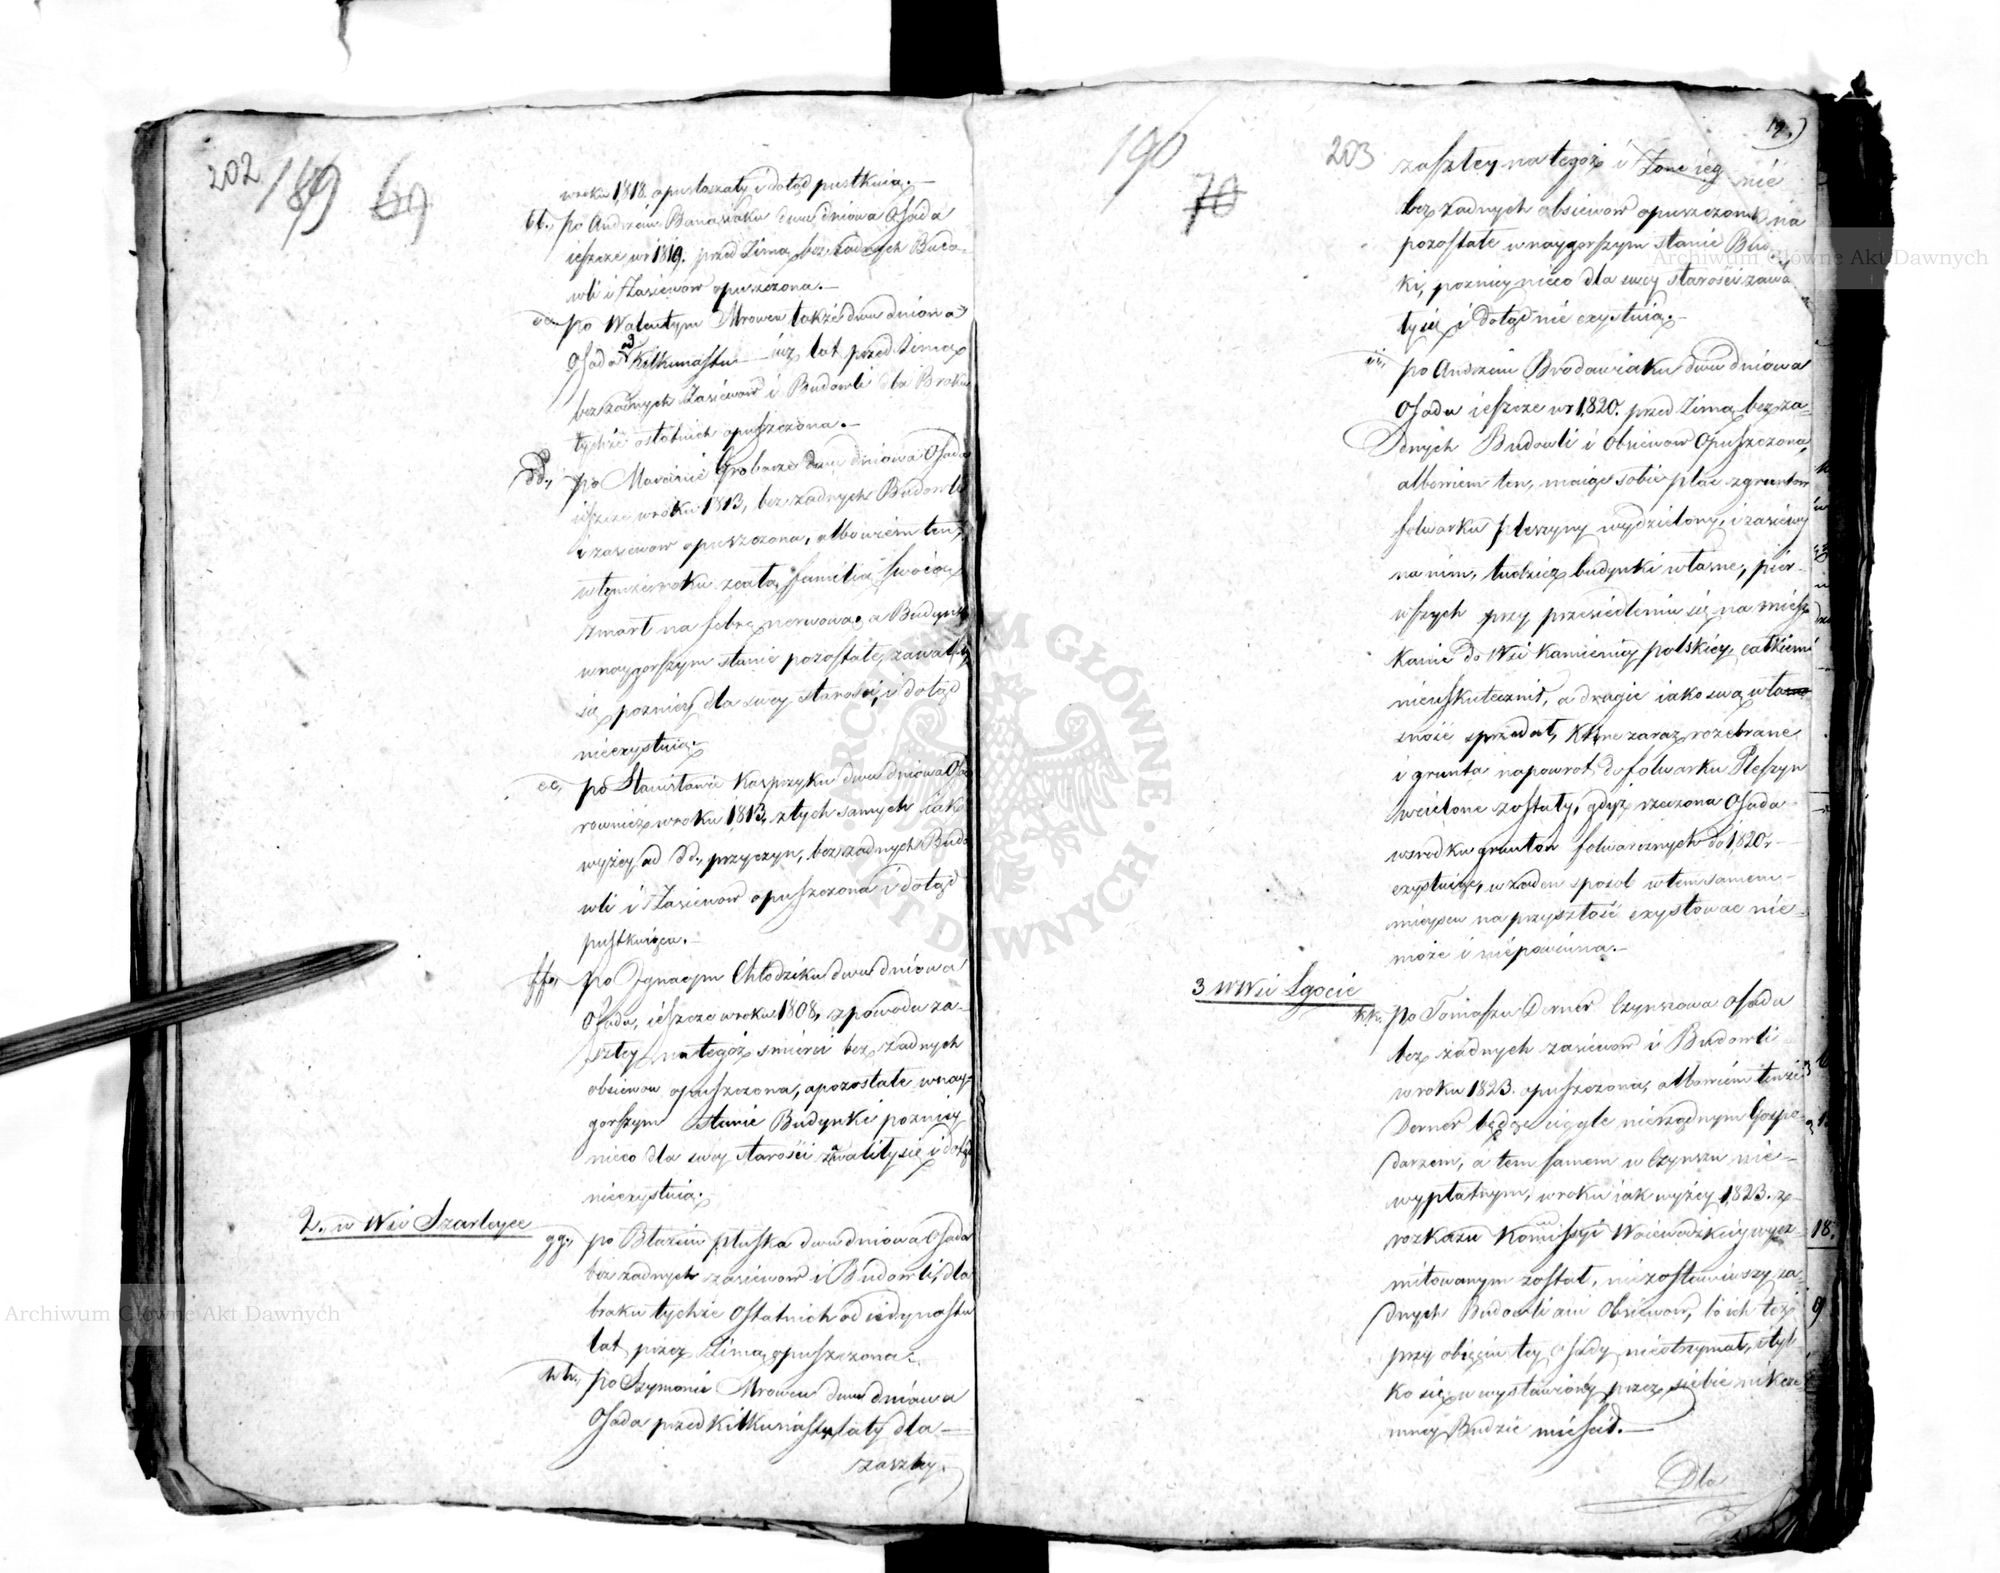 202 189 69
w roku 1818. opustoszały i dotąd pustkuią.—
bb., po Andrzeiu Banasiaku dwu dniowa Osada
ieszcze w r 1819. przed Zimą, bez żadnych Budo-
wli i Zasiewow opuszczona.—
cc., po Walentym Mrowcu także dwu dniowa
Osada od kilkunastu — iuż lat przed Zimą
bez żadnych Zasiewow i Budowli dla Braku
tychże ostatnich opuszczona.—
dd., po Marcinie Grobarze dwu dniowa Osada
ieszcze w roku 1813, bez żadnych Budowli
i zasiewow opuszczona, albowiem ten,
w tymże roku z całą familią swoią
zmarł na febrę nerwową, a Budynki
w naygorszym stanie pozostałe, zawaliły
się pozniey dla swey starości, i dotąd
nieexystuią.
ee., po Stanisławie Kasprzyku dwu dniowa Osada
rownież w roku 1813, z tych samych iak
wyżey ad dd., przyczyn, bez żadnych Budo
wli i Zasiewow opuszczona i dotąd
pustkuiąca.—
ff., po Ignacym Chłodziku dwu dniowa
Osada, ieszcze w roku 1808, z powodu za-
szłey na tegoż śmierci bez żadnych
obsiewow opuszczona, a pozostałe w nay-
gorszym stanie Budynki pozniey
nieco dla swey starości zawality się i dotąd
nieexystuią.
2., w Wsi Szarleyce
gg., po Błażeiu Pluska dwu dniowa Osada
bez żadnych zasiewow i Budowli, dla
braku tychże Ostatnich od iedynastu
lat przez Zimą opuszczona.
hh., po Szymonie Mrowcu dwu dniowa
Osada przed kilkunastu laty dla —
zaszłey.
190 70 203 19.)
zaszłey na tegoż i Żonie ieg
bez żadnych obsiewow opuszczona
pozostałe w naygorszym stanie Bud
ki, pozniey nieco dla swey starości zawa
ły się i dotąd nie exystuią.—
ii., po Andrzeiu Brodawiaku dwu dniowa
Osada ieszcze w r 1820. przed Zimą bez ża-
dnych Budowli i Obsiewow Opuszczona,
albowiem ten, maiąc sobie plac z gruntow
folwarku Pleszyny wydzielony, i zasiewy
na nim, tudzież budynki własne, pier-
wszych przy przesiedleniu się na miesz
kanie do Wsi Kamienicy polskiey, całkiem
nieuskutecznił, a drugie iako swą własną
sność sprzedał, które zaraz rozebrane
i grunta napowrot do folwarku Pleszyn
wcielone zostały, gdyż rzeczona Osada
w srodku gruntow folwarcznych do 1820 r —
exystuiąc, w żaden sposob w tem samem —
mieyscu na przyszłość exystować nie-
może i niepowinna.—
3 w Wsi Lgocie
kk., po Tomaszu Derner Czynszowa Osada
bez żadnych zasiewow i Budowli
w roku 1823. opuszczona, albowiem tenże
Derner będąc ciągle nierządnym Gospo-
darzem, a tem samem w Czynszu nie-
wypłatnym, w roku iak wyżey 1823. z-
rozkazu Kommissyi Woiewodzkiey wyex-
mitowanym został, nie zostawiwszy ża-
dnych Budowli ani Obsiewow, bo ich też
przy obięciu tey Osady nieotrzymał, i tyl
ko się w wystawioney przez siebie nikcze
mney Budzie mieścił.—
Dla
18.
9